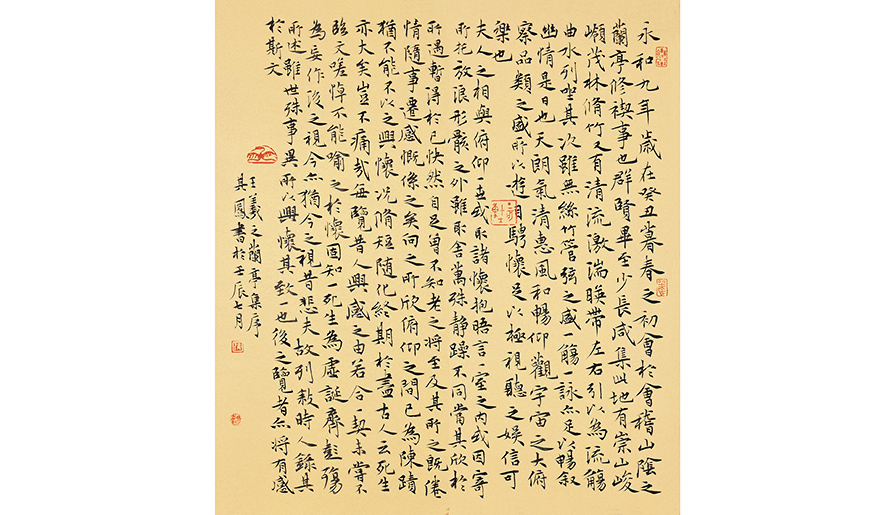 永和九年歲在癸丑暮春之初會於會稽山陰之
蘭亭脩禊事也群賢畢至少長咸集此地有崇山峻
嶺茂林脩竹又有清流激湍暎帶左右引以為流觴
曲水列坐其次雖無絲竹管弦之盛一觴一詠亦足以暢叙
幽情是日也天朗氣清惠風和暢仰觀宇宙之大俯
察品類之盛所以遊目騁懷足以極視聽之娛信可
樂也
夫人之相與俯仰一世或取諸懷抱晤言一室之內或因寄
所託放浪形骸之外雖取舍萬殊靜躁不同當其欣於
所遇暫得於己快然自足曾不知老之將至及其所之既倦
情隨事遷感慨係之矣向之所欣俯仰之間已為陳蹟
猶不能不以之興懷況脩短隨化終期於盡古人云死生
亦大矣豈不痛哉每覽昔人興感之由若合一契未嘗不
臨文嗟悼不能喻之於懷固知一死生為虛誕齊彭殤
為妄作後之視今亦猶今之視昔悲夫故列敍時人錄其
所述雖世殊事異所以興懷其致一也後之覽者亦將有感
於斯文
王羲之蘭亭集序
其鳳書於壬辰七月